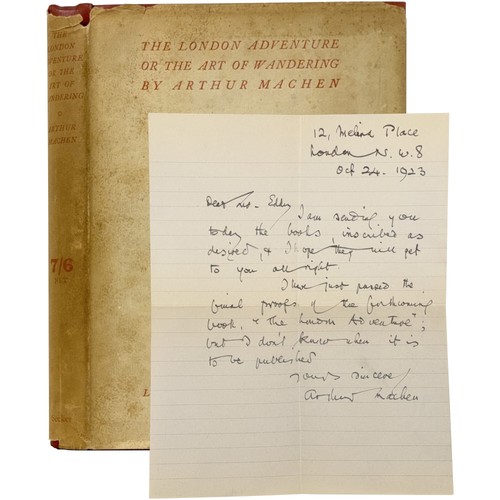 THE
LONDON
ADVENTURE
OR THE
ART OF
WANDERING
ARTHUR
MACHEN
7/6
NET
SECKER
THE LONDON ADVENTURE
OR THE ART OF WANDERING
BY ARTHUR MACHEN
L
12, Melina Place
London N.W.8
Oct 24. 1923
Dear Mr. Eddy
I am sending you
today the books, inscribed as
desired, & I hope they will get
to you all right.
I have just passed the
final proofs of the forthcoming
book, "The London Adventure";
but I don't know when it is
to be published
Yours sincerely
Arthur Machen